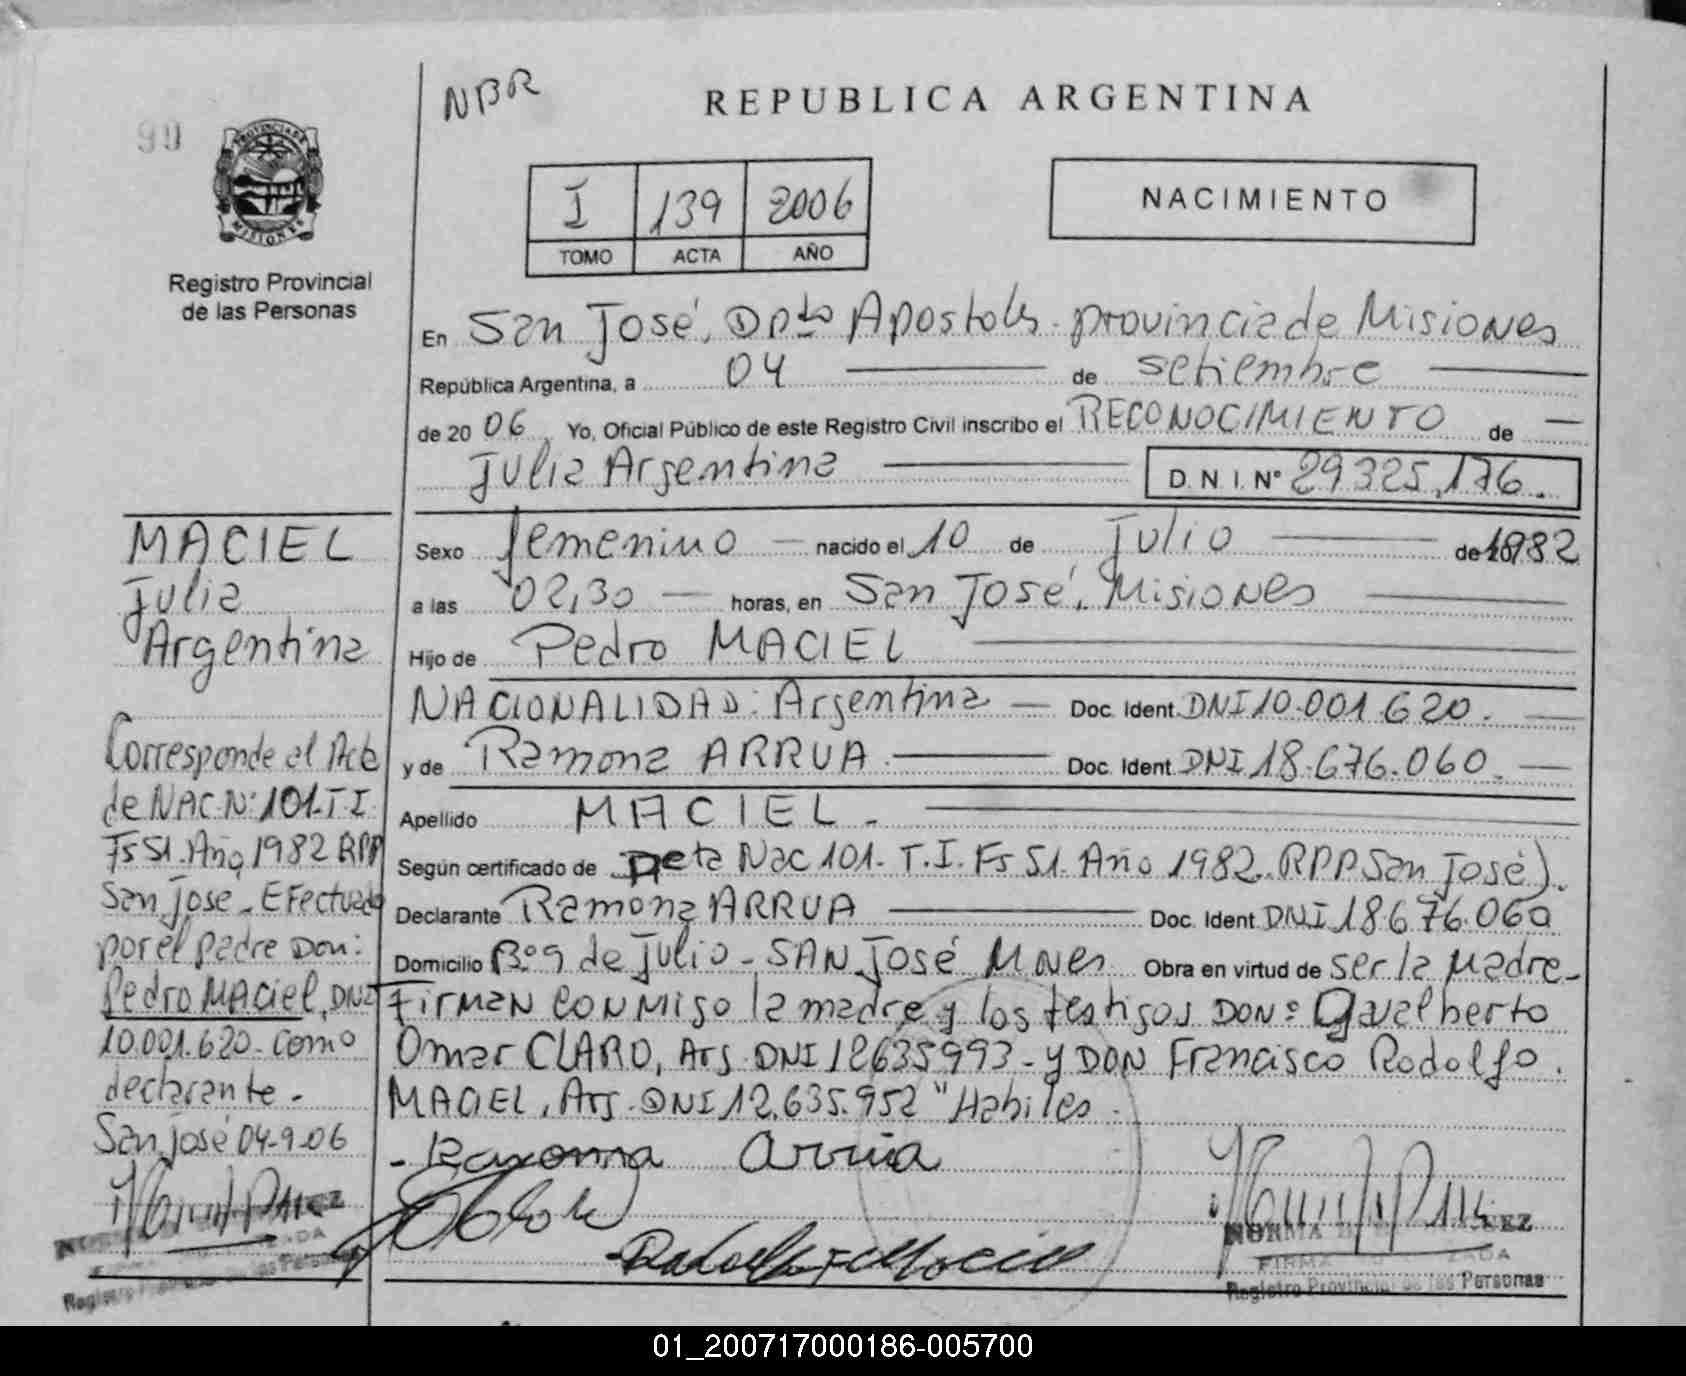 NBR
REPUBLICA ARGENTINA
90
PROVINCIA DE
MISIONES
I 139 2006
TOMO ACTA AÑO
NACIMIENTO
Registro Provincial
de las Personas
En San José, Dpto Apostoles - provincia de Misiones
República Argentina, a 04 de setiembre
de 20 06, Yo, Oficial Público de este Registro Civil inscribo el RECONOCIMIENTO de
Julia Argentina D.N.I.Nº 29325.176.
MACIEL
Julia
Argentina
Corresponde al Acta
de NAC Nº 101-T I
Fs 51. Año 1982 RPP
San José - Efectuado
por el padre Don:
Pedro Maciel, DNI
10.001.620 - como
declarante -
San José 04-9-06
Sexo femenino nacido el 10 de Julio de 1982
a las 02,30 horas, en San José, Misiones
Hijo de Pedro MACIEL
NACIONALIDAD: Argentina Doc. Ident. DNI 10.001.620.
y de Ramona ARRUA Doc. Ident. DNI 18.676.060.
Apellido MACIEL.
Según certificado de Acta Nac 101. T.I. Fs 51. Año 1982. RPP San José).
Declarante Ramona ARRUA Doc. Ident. DNI 18.676.060
Domicilio Bº 9 de Julio - SAN José Mnes Obra en virtud de ser la Madre -
Firman conmigo la madre y los testigos Don: Gualberto
Omar CLARO, Arg. DNI 12635993 - y DON Francisco Rodolfo.
MACIEL, Arg. DNI 12.635.952 "Habiles.
- Ramona Arrua
NORMA
FIRMA
Registro Provincial de las Personas
Registro Provincial de las Personas
01_200717000186-005700